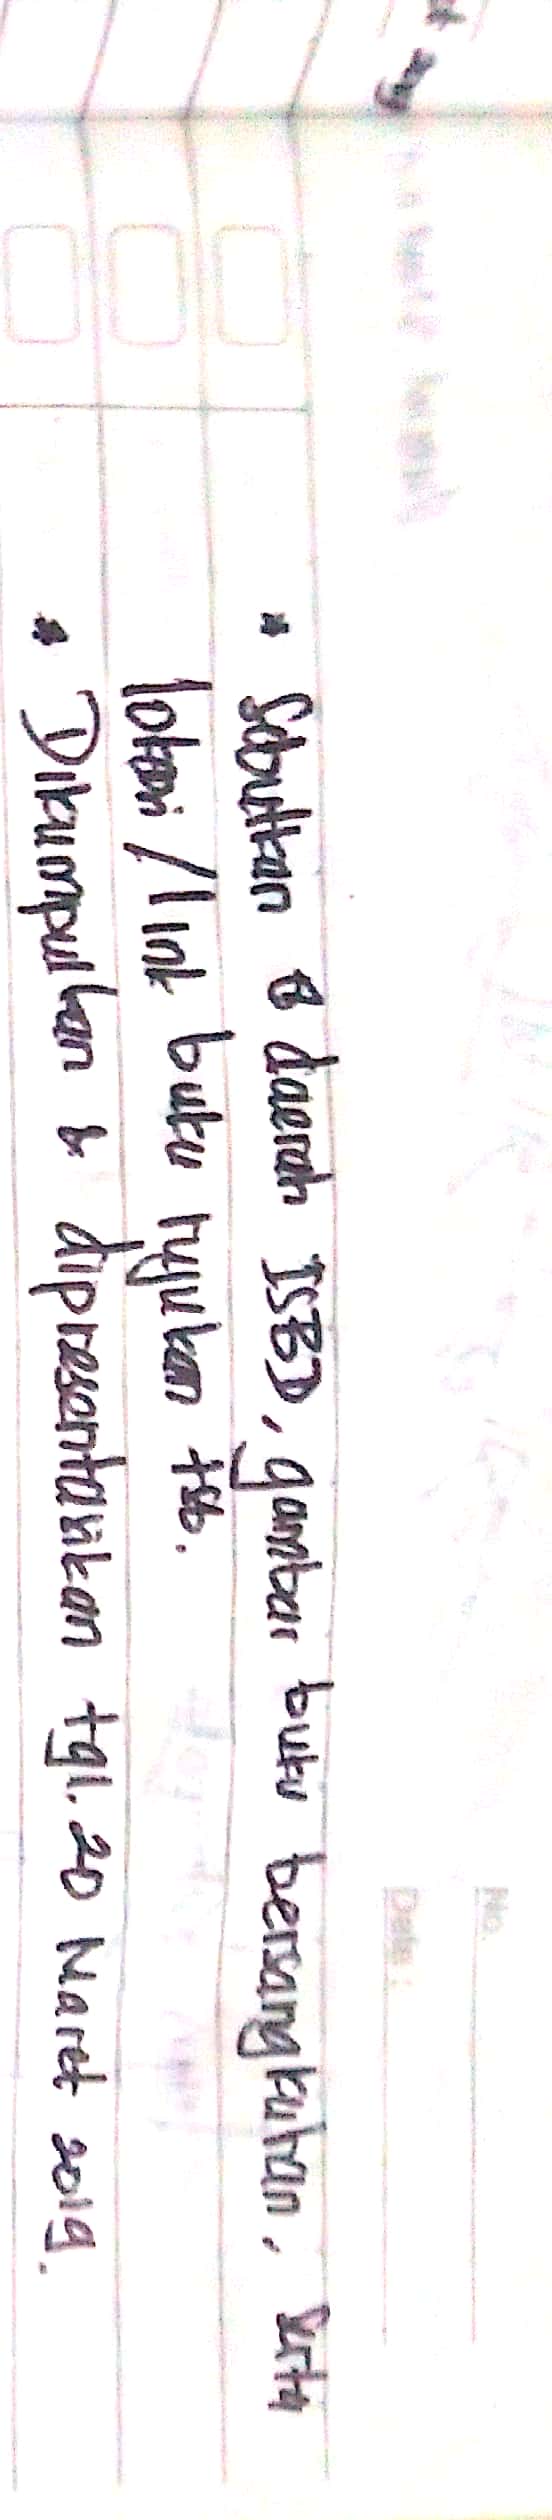 No.
Date:
* Sebutkan 8 daerah ISBD, gambar buku bersangkutan, serta
lokasi / link buku rujukan tsb.
* Dikumpulkan & dipresentasikan tgl. 20 Maret 2019.